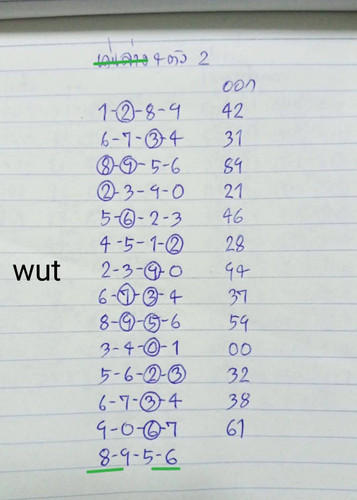 4 ตัว 2
ออก
1-2-8-9 42
6-7-3-4 31
8-9-5-6 89
2-3-9-0 21
5-6-2-3 46
4-5-1-2 28
wut 2-3-9-0 94
6-7-3-4 37
8-9-5-6 59
3-4-0-1 00
5-6-2-3 32
6-7-3-4 38
9-0-6-7 61
8-9-5-6